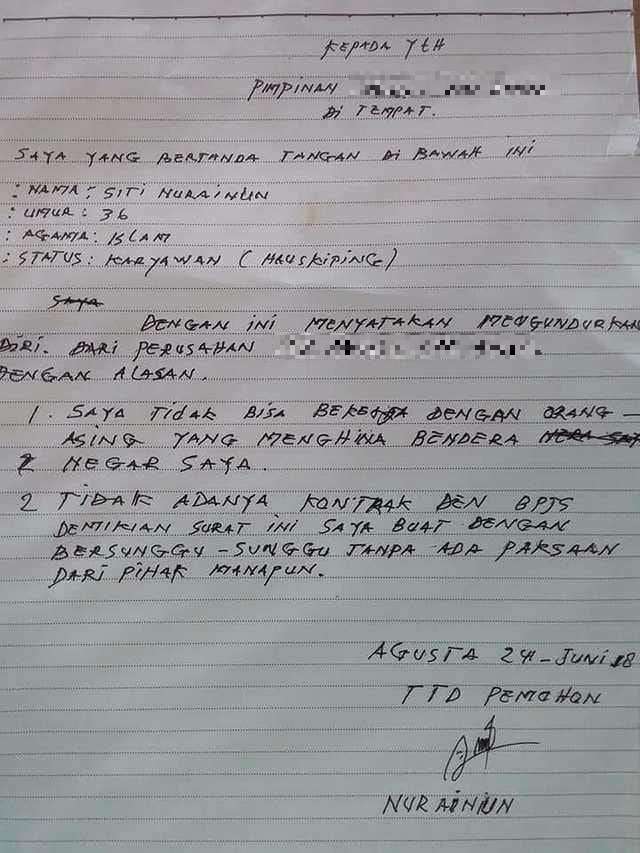 KEPADA YtH
PIMPINAN
Di TEMPAT.
SAYA YANG BERTANDA TANGAN Di BAWAH INI
: NAMA : SITI NURAINUN
: UMUR : 36
: AGAMA : ISLAM
: STATUS : KARYAWAN ( HAUSKIPING )
SAYA
DENGAN INI MENYATAKAN MENGUNDURKAN
DIRI. DARI PERUSAHAN
DENGAN ALASAN.
1. SAYA TIDAK BISA BEKERJA DENGAN ORANG -
ASING YANG MENGHINA BENDERA
NEGAR SAYA.
2 TIDAK ADANYA KONTRAK DEN BPJS
DEMIKIAN SURAT INI SAYA BUAT DENGAN
BERSUNGGU - SUNGGU TANPA ADA PAKSAAN
DARI PIHAK MANAPUN.
AGUSTA 24 - JUNI 18
TTD PEMOHON
NURAINUN